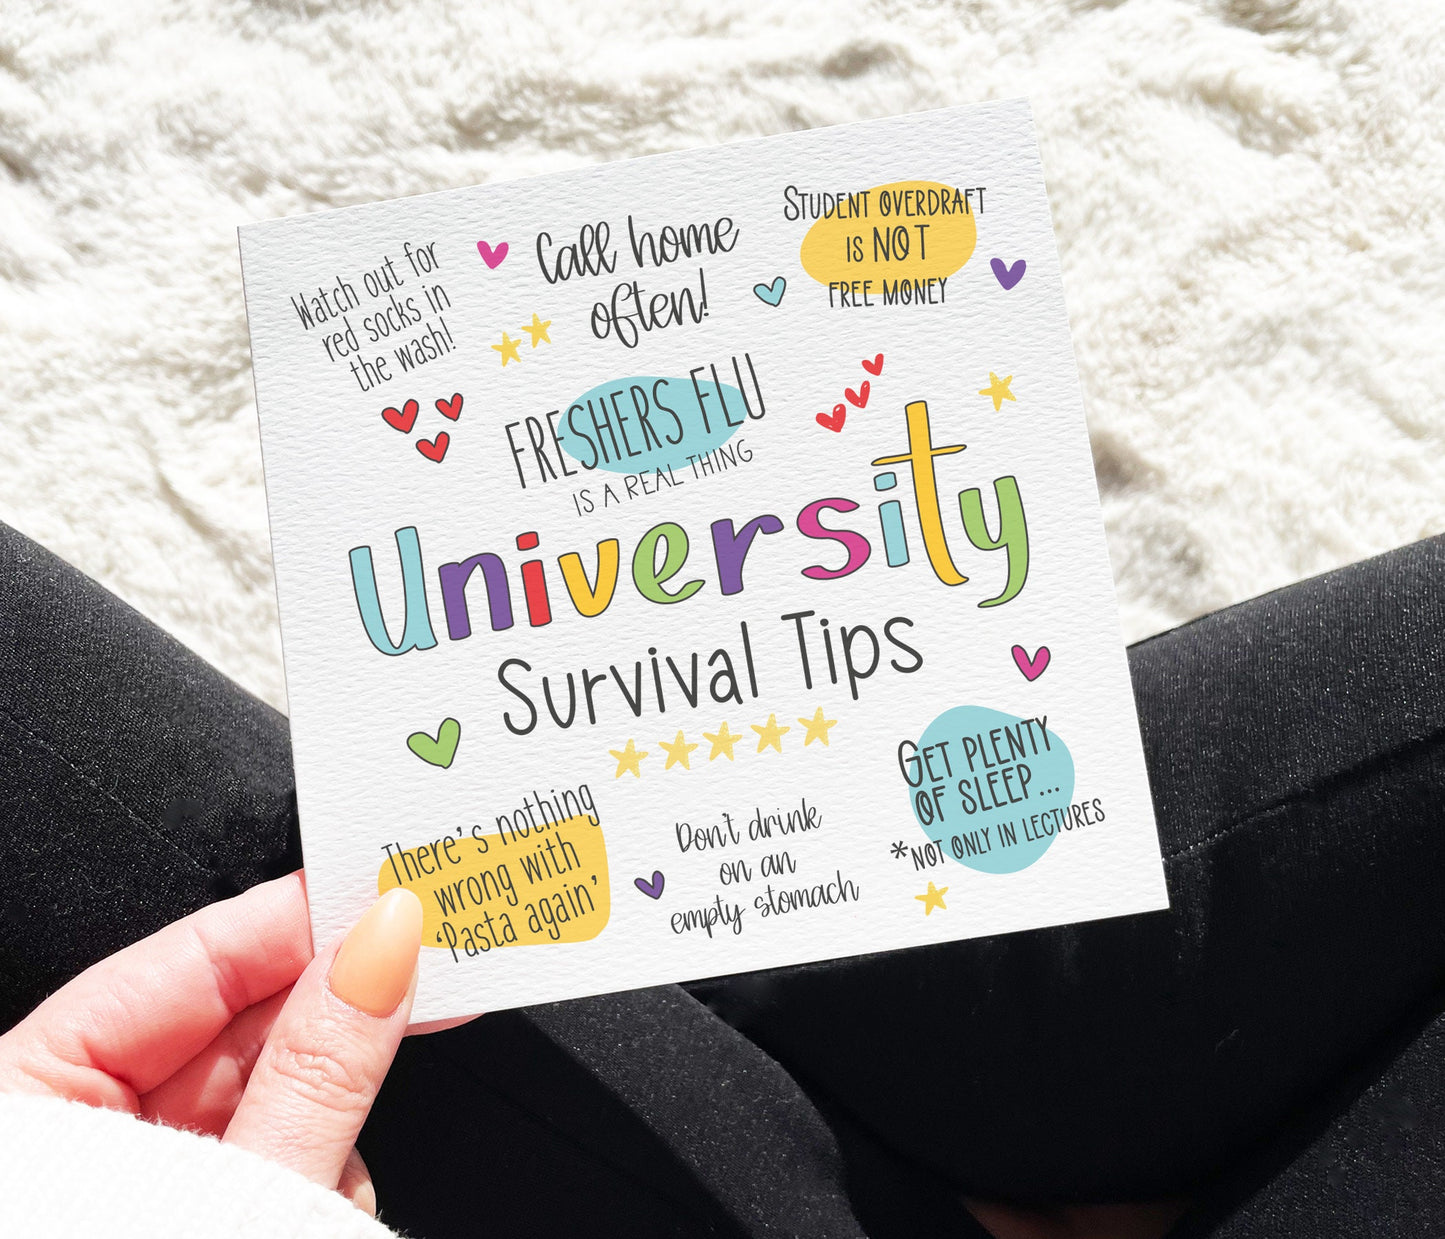 Watch out for
red socks in
the wash!
Call home
often!
STUDENT OVERDRAFT
IS NOT
FREE MONEY
FRESHERS FLU
IS A REAL THING
University
Survival Tips
There's nothing
wrong with
'Pasta again'
Don't drink
on an
empty stomach
GET PLENTY
OF SLEEP...
*NOT ONLY IN LECTURES